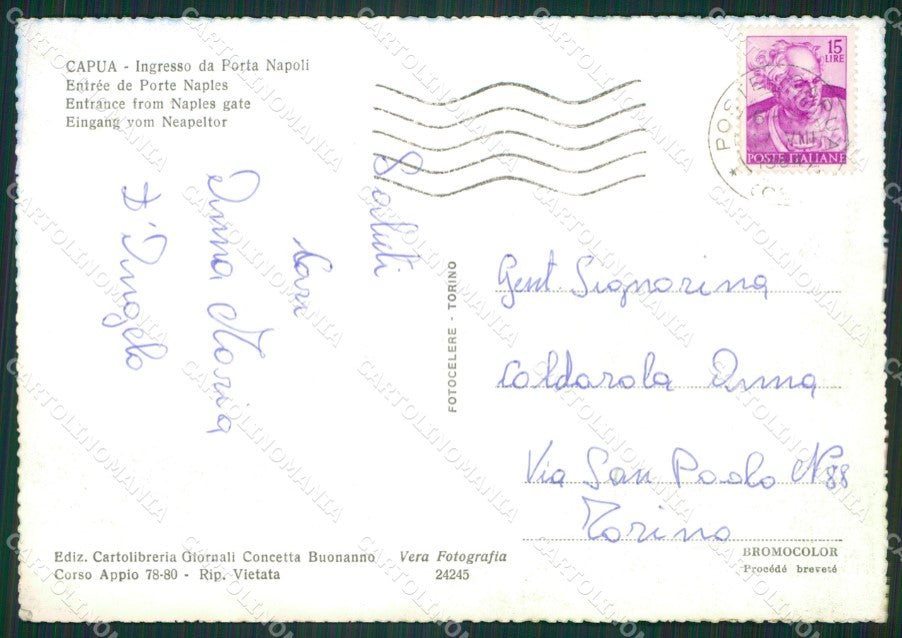 CAPUA - Ingresso da Porta Napoli
Entrée de Porte Naples
Entrance from Naples gate
Eingang vom Neapeltor
15
LIRE
POSTE ITALIANE
Saluti
Cari
Anna Maria
D'Angelo
FOTOCELERE - TORINO
Gent. Signorina
Caldarola Anna
Via San Paolo N 88
Torino
Ediz. Cartolibreria Giornali Concetta Buonanno
Corso Appio 78-80 - Rip. Vietata
Vera Fotografia
24245
BROMOCOLOR
Procédé breveté
CARTOLINOMANIA